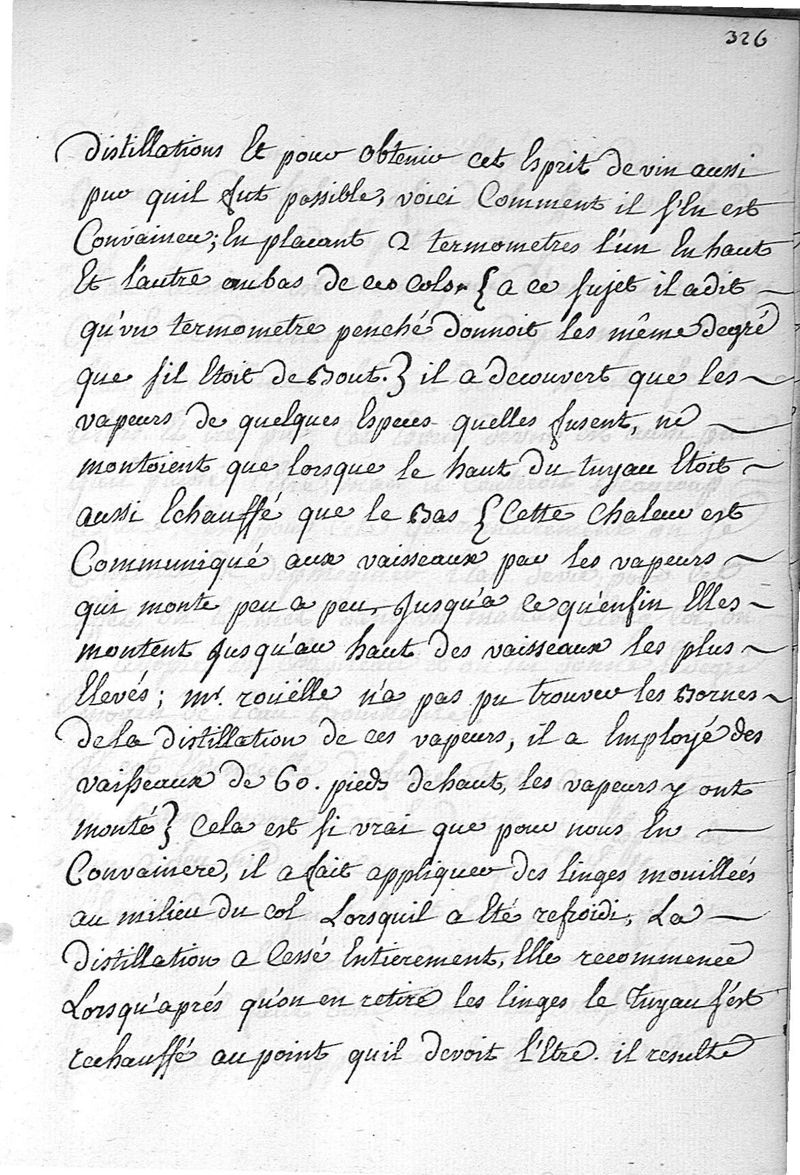 326
distillations Et pour obtenir cet Esprit de vin aussi
pur quil fut possible, voici Comment il s'En est
Convaincu; En placant 2 termometres l'un En haut
Et l'autre au bas de ces cols. { a ce sujet il a dit
qu'vn termometre penché donnoit les même degré
que s'il Etoit de Bout. } il a decouvert que les
vapeurs de quelques Especes quelles fusent, ne
montoient que lorsque le haut du tuyau Etoit
aussi Echauffé que le Bas { Cette Chaleur est
Communiqué aux vaisseaux par les vapeurs
qui monte peu a peu, Jusqu'a ce qu'enfin Elles
montent Jusqu'au haut des vaisseaux les plus
Elevés; mr. roüelle n'a pas pu trouver les Bornes
de la distillation de ces vapeurs, il a Employé des
vaisseaux de 60. pieds de haut, les vapeurs y ont
monté } Cela est si vrai que pour nous En
Convaincre, il a fait appliquer des linges mouilleés
au milieu du col Lorsquil a Eté refroidi, La
distillation a Cessé Entierement, Elle recommence
Lorsqu'aprés qu'on en retire les linges le tuyau s'est
rechauffé au point quil devoit l'Etre. il resulte